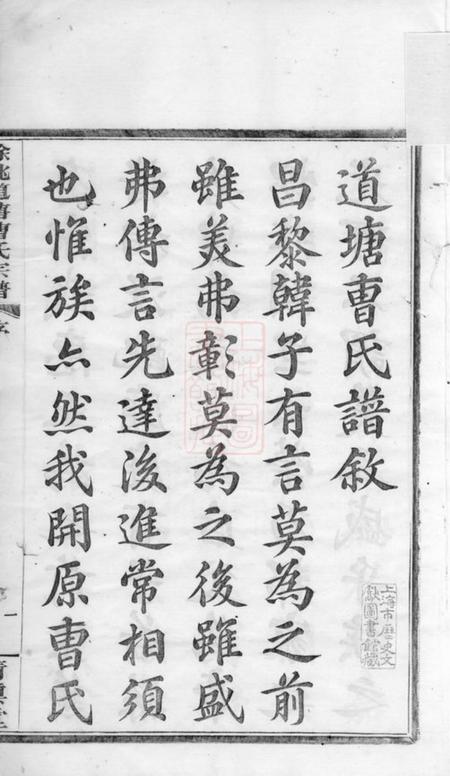 道塘曹氏譜敘
昌黎韓子有言莫為之前
雖美弗彰莫為之後雖盛
弗傳言先達後進常相須
也惟族亦然我開原曹氏
餘姚道塘曹氏宗譜
序
一
上海市歷史文
獻圖書館藏